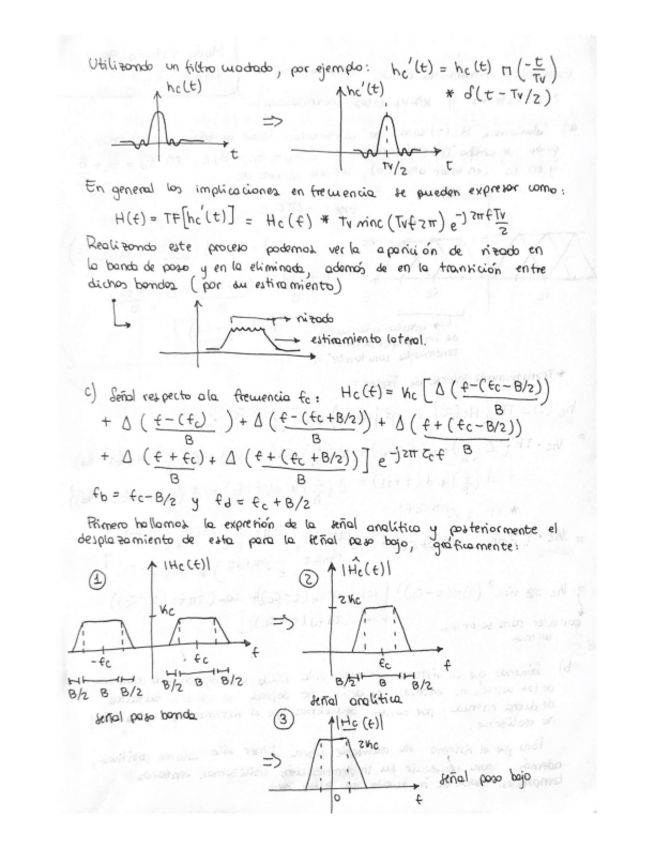 Utilizando un filtro modado, por ejemplo: hc'(t) = hc(t) Π(-t/Tv)
* δ(t - Tv/2)
hc(t)
hc'(t)
⇒
t
Tv/2
t
En general las implicaciones en frecuencia se pueden expresar como:
H(f) = TF[hc'(t)] = Hc(f) * Tv sinc(Tvf2π) e^-j2πfTv/2
Realizando este proceso podemos ver la aparición de rizado en
la banda de paso y en la eliminada, además de en la transición entre
dichas bandas (por su estiramiento)
rizado
estiramiento lateral.
c) Señal respecto a la frecuencia fc: Hc(f) = Kc [Δ(f-(fc-B/2)/B)
+ Δ(f-(fc)/B) + Δ(f-(fc+B/2)/B) + Δ(f+(fc-B/2)/B)
+ Δ(f+fc/B) + Δ(f+(fc+B/2)/B)] e^-j2πτcf
fb = fc-B/2 y fd = fc+B/2
Primero hallamos la expresión de la señal analítica y posteriormente el
desplazamiento de esta para la señal paso bajo, gráficamente:
① |Hc(f)|
② |Ĥc(f)|
Kc
2Kc
⇒
-fc
fc
f
fc
f
B/2 B B/2
B/2 B B/2
B/2 B B/2
señal paso banda
señal analítica
③ |Hc(f)|
2Kc
⇒
señal paso bajo
0
f